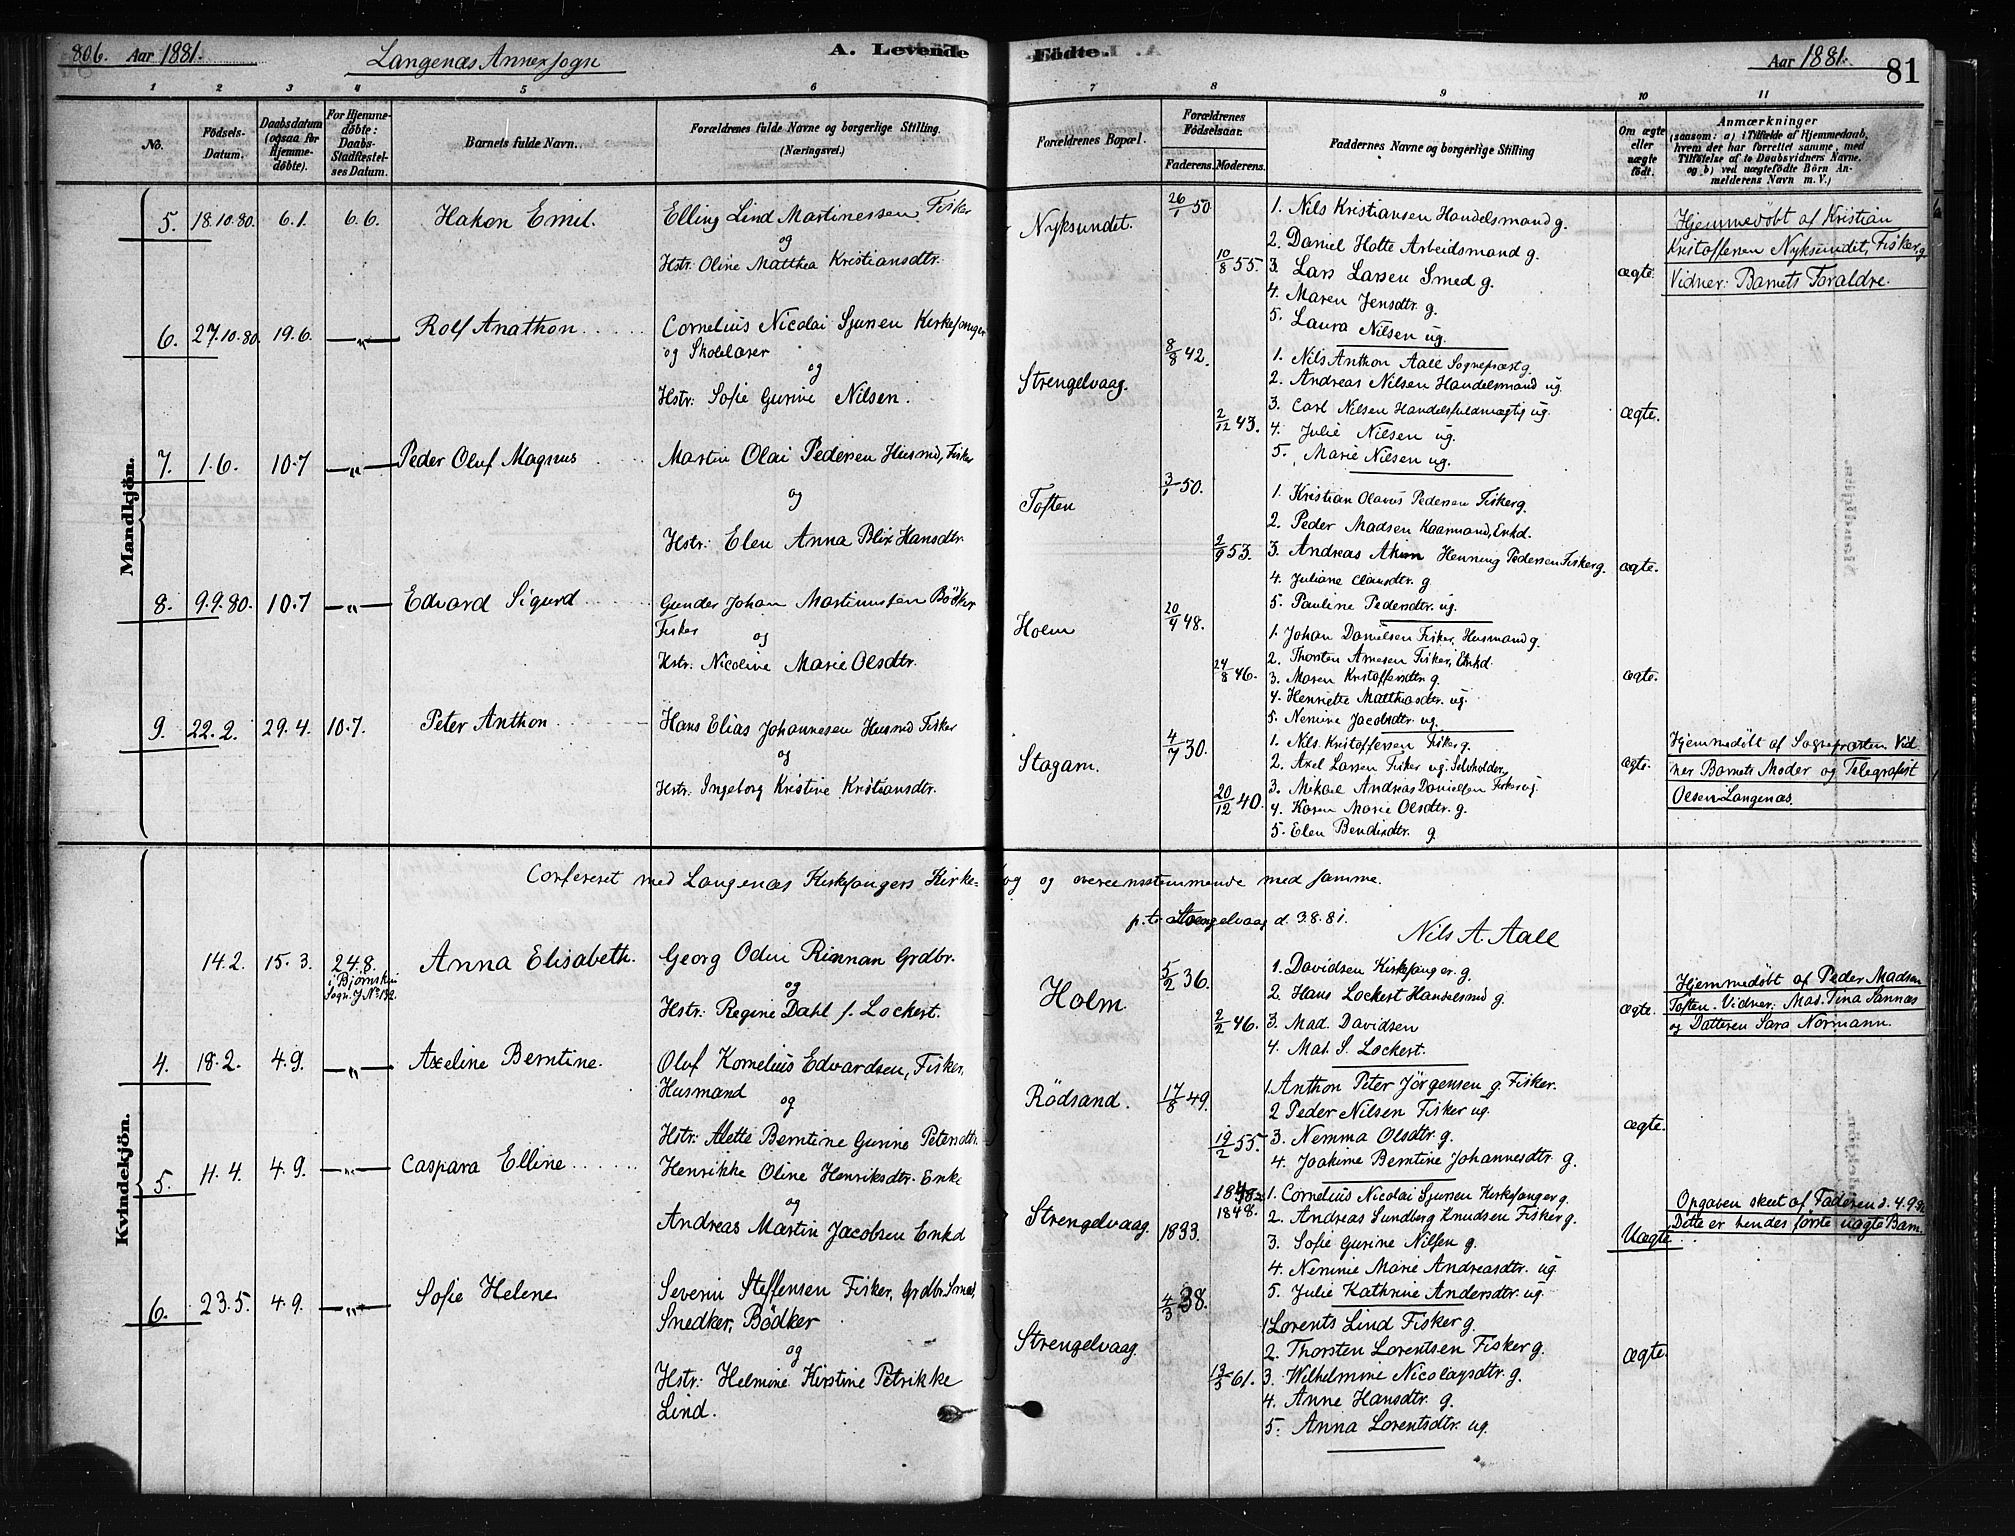 806. Aar 1881.
Langenæs Annexsogn
A. Levende Födte.
Aar 1881.
81
1 2 3 4 5 6 7 8 9 10 11
No.
Födsels-Datum.
Daabsdatum (ogsaa for Hjemmedöbte).
For Hjemmedöbte: Daabs-Stadfæstelses Datum.
Barnets fulde Navn.
Forældrenes fulde Navne og borgerlige Stilling. (Næringsvei.)
Forældrenes Bopæl.
Forældrenes Födselsaar.
Faderens. Moderens.
Faddernes Navne og borgerlige Stilling
Om ægte eller uægte födt.
Anmærkninger
(saasom: a) i Tilfælde af Hjemmedaab, hvem der har forrettet samme, med Tilföielse af to Daabsvidners Navne. og b) ved uægtefödte Börn Anmelderens Navn m. V.)
Mandkjön.
5. 18.10.80. 6.1. 6.6. Hakon Emil.
Elling Lind Martinessen Fisker
og
Hstr. Oline Matthea Kristiansdtr.
Nyksundet.
26/1 50.
10/8 55.
1. Nils Kristiansen Handelsmand g.
2. Daniel Holte Arbeidsmand g.
3. Lars Larsen Smed g.
4. Maren Jensdtr. g.
5. Laura Nilsen ug.
ægte.
Hjemmedöbt af Kristian
Kristoffersen Nyksundet, Fisker g.
Vidner: Barnets Foraldre.
6. 27.10.80. 19.6. —"— Rolf Anathon
Cornelius Nicolai Sjursen Kirkesanger
og Skolelærer
og
Hstr: Sofie Gurine Nilsen.
Strengelvaag.
8/8 42.
2/12 43.
1. Nils Anthon Aall Sognepræst g.
2. Andreas Nilsen Handelsmand ug.
3. Carl Nilsen Handelsfuldmægtig ug.
4. Julie Nilsen ug.
5. Marie Nilsen ug.
ægte.
7. 1.6. 10.7 —"— Peder Oluf Magnus
Martin Olai Pedersen Husmd, Fisker
og
Hstr: Elen Anna Blix Hansdtr.
Toften
3/1 50.
2/9 53.
1. Kristian Olavus Pedersen Fisker g.
2. Peder Madsen Kaarmand, Enkd.
3. Andreas Akim Henning Pedersen Fisker g.
4. Juliane Clausdtr. g
5. Pauline Pedersdtr. ug.
ægte.
8. 9.9.80. 10.7 —"— Edvard Sigurd
Gunder Johan Martinussen Bödker
Fisker
og
Hstr: Nicoline Marie Olsdtr.
Holm
20/4 48.
24/8 46.
1. Johan Danielsen Fisker, Husmand g.
2. Thorsten Arnesen Fisker, Enkd.
3. Maren Kristoffersdtr. g.
4. Henriette Matthiasdtr. ug.
5. Nemine Jacobsdtr. ug.
ægte.
9. 22.2. 29.4. 10.7. Peter Anthon
Hans Elias Johannesen Husmd Fisker
og
Hstr. Ingeborg Kristine Kristiansdtr.
Stagarn.
4/7 30.
20/12 40.
1. Nils Kristoffersen Fisker g.
2. Axel Larsen Fisker ug. Selvholder
3. Mikael Andreas Danielsen Fisker ug.
4. Karen Marie Olsdtr. g.
5. Elen Bendixdtr. g
ægte.
Hjemmedöbt af Sognepræsten. Vid
ner Barnets Moder og Telegrafist
Olsen Langenæs.
Confereret med Langenæs Kirkesangers Kirkebog og overeensstemmende med samme.
p.t. Strengelvaag d. 3.8.81.
Nils A. Aall
Kvindekjön.
14.2. 15.3. 24.8.
i Bjørnskin
Sogn. J No 132.
Anna Elisabeth.
Georg Odin Rinnan Grdbr.
og
Hstr: Regine Dahl f. Lockert.
Holm.
5/2 36.
2/2 46.
1. Davidsen Kirkesanger g.
2. Hans Lockert Handelsmd g.
3. Mad. Davidsen
4. Mad. S. Lockert.
ægte.
Hjemmedöbt af Peder Madsen
Toften. Vidner: Mad. Tina Sannæs
og Datteren Sara Normann.
4. 18.2. 4.9. —"— Axeline Berntine.
Oluf Kornelius Edvardsen, Fisker,
Husmand
og
Hstr: Alette Berntine Gurine Petersdtr.
Rödsand.
17/8 49.
19/2 55.
1. Anthon Peter Jörgensen g. Fisker.
2 Peder Nilsen Fisker ug.
3. Nemma Olsdtr. g.
4. Joakime Berntine Johannesdtr. g.
ægte.
5. 11.4. 4.9. —"— Caspara Elline
Henrikke Oline Henriksdtr. Enke
og
Andreas Martin Jacobsen Enkd
Strengelvaag.
1833.
1848.
1. Cornelius Nicolai Sjursen Kirkesanger g.
2. Andreas Sundberg Knudsen Fisker g.
3. Sofie Gurine Nilsen g.
4. Nemmie Marie Andreasdtr. ug
5. Julie Kathrine Andersdtr. ug
Uægte.
Opgaven skeet af Faderen d. 4.9.81
Dette er hendes første uægte Barn.
6. 23.5. 4.9. —"— Sofie Helene
Severin Steffensen Fisker, Grdbr. Smed,
Snedker, Bödker
og
Hstr: Helmine Kirstine Petrikke
Lind.
Strengelvaag.
4/3 38.
13/5 61.
1 Lorents Lind Fisker g.
2. Thorsten Lorentsen Fisker g.
3. Wilhelmine Nicolaysdtr. g.
4. Anne Hansdtr. g.
5. Anna Lorentsdtr. ug.
ægte